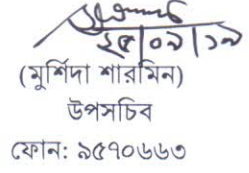 ২৫/০৯/১৯
(মুর্শিদা শারমিন)
উপসচিব
ফোন: ৯৫৭০৬৬৩